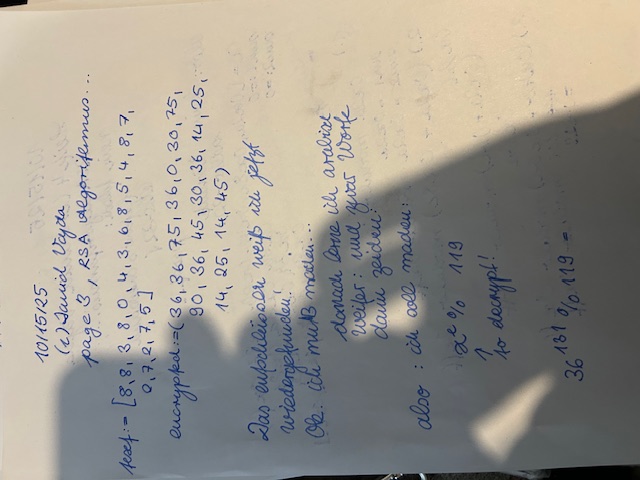 10/15/25
(c) David Vajda
page 3, RSA Algorithmus...
text:=[8,8,3,8,0,4,3,6,8,5,4,8,7,
0,7,2,7,5]
encrypted:=(36,36,75,36,0,30,75,
90,36,45,30,36,14,25,
14,25,14,45)
Das entscheidende weiß ich jetzt
wiedergefunden!
Ok. ich muß machen...
danach lerne ich arabisch
weiter: und zwar Worte
dann zeiden:
also: ich soll machen:
x^e % 119
to decrypt!
36^131 % 119 =